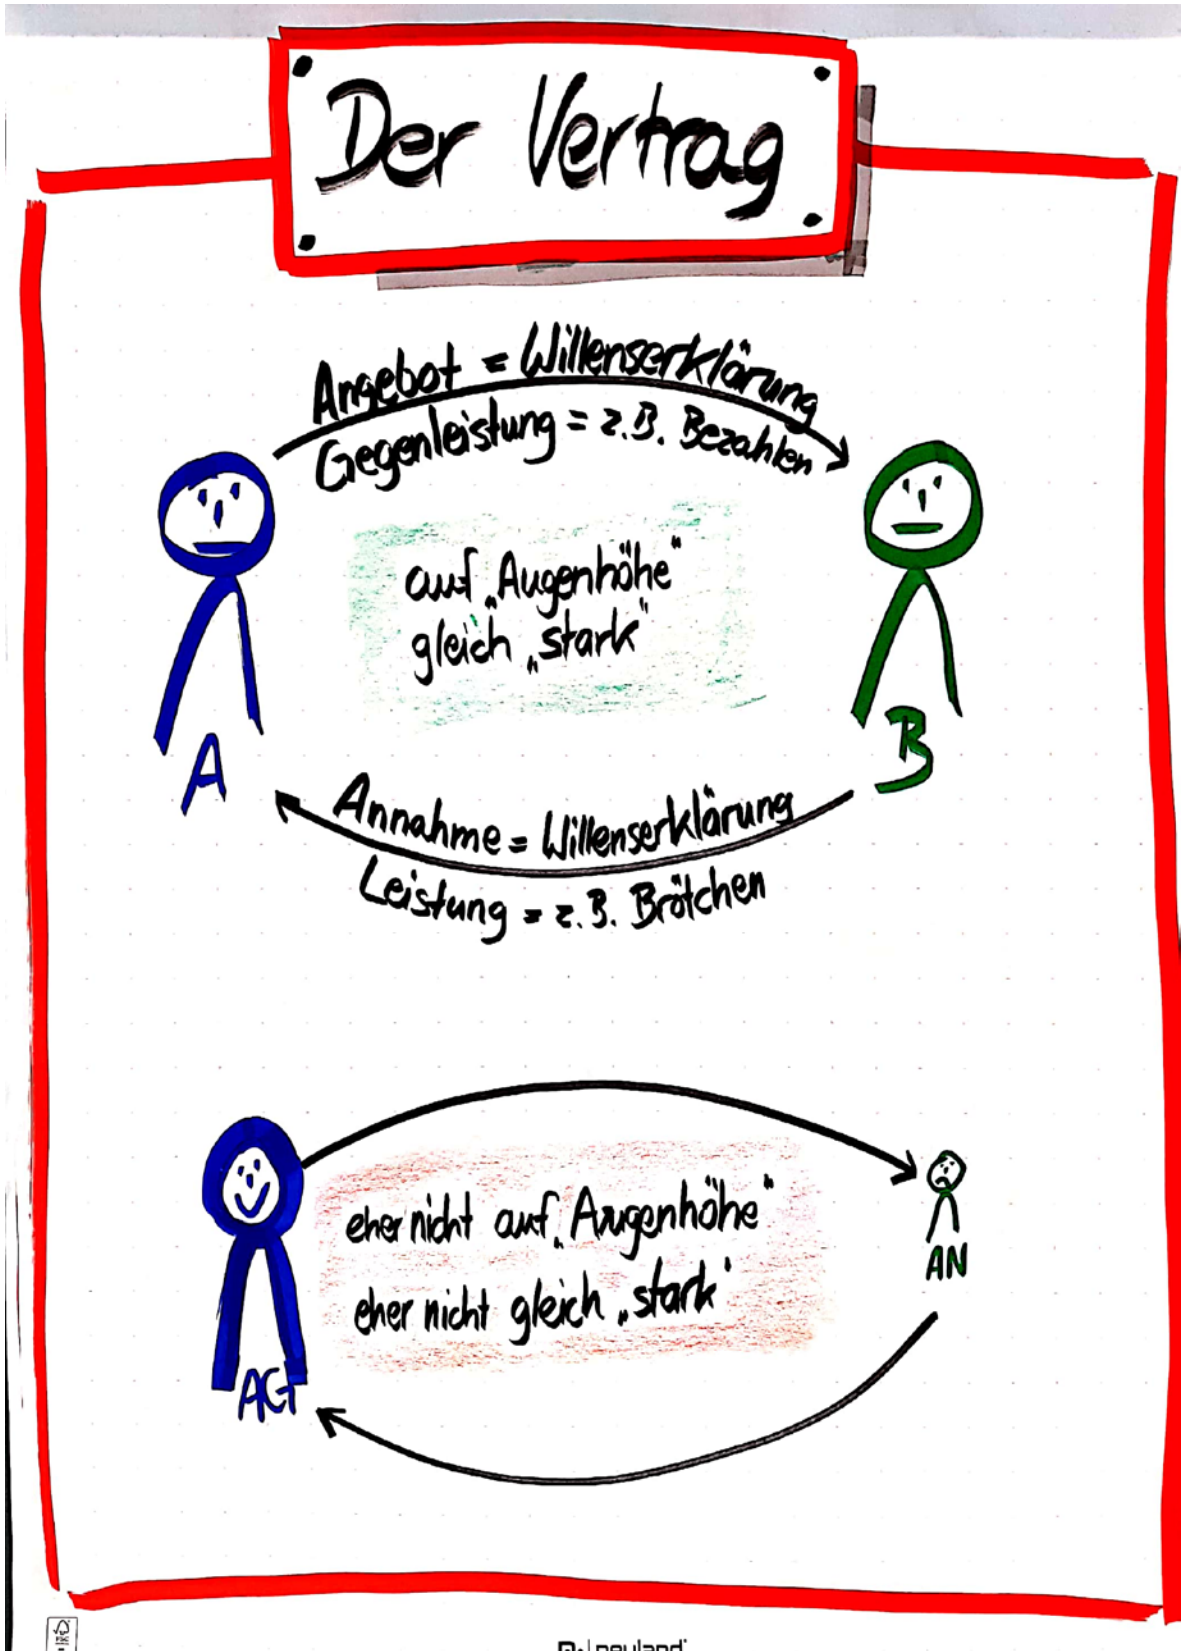 Der Vertrag
Angebot = Willenserklärung
Gegenleistung = z.B. Bezahlen
auf „Augenhöhe“
gleich „stark“
A
B
Annahme = Willenserklärung
Leistung = z.B. Brötchen
eher nicht auf „Augenhöhe“
eher nicht gleich „stark“
AN
AG
FSC
neuland